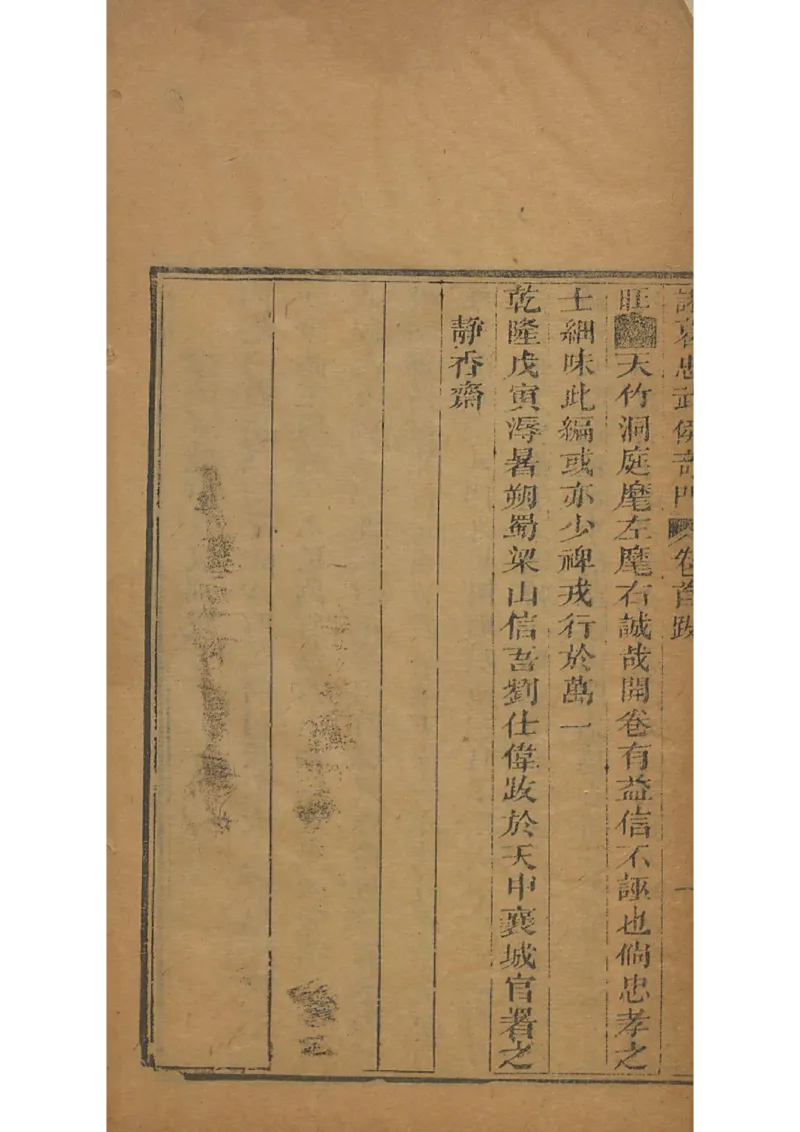 諸葛忠武侯奇門卷首跋 一
旺天竹洞庭麾左麾右誠哉開卷有益信不誣也倘忠孝之
士細味此編或亦少裨戎行於萬一
乾隆戊寅溽暑朔蜀梁山信吾劉仕偉跋於天中襄城官署之
靜香齋